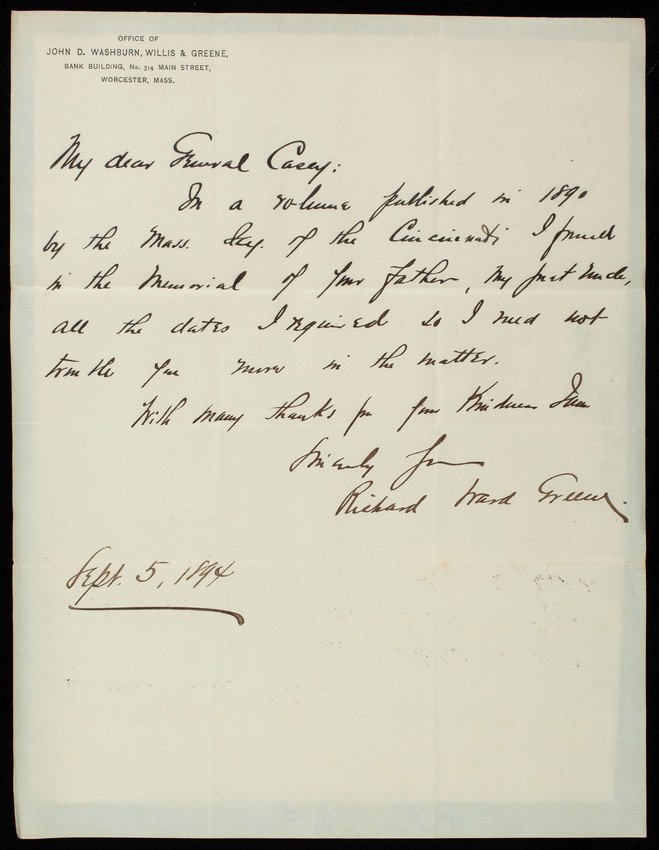 OFFICE OF
JOHN D. WASHBURN, WILLIS & GREENE,
BANK BUILDING, No. 314 MAIN STREET,
WORCESTER, MASS.
My dear General Casey:
In a volume published in 1890
by the Mass. Soy. of the Cincinnati I found
in the Memorial of your father, my great uncle,
all the dates I required so I need not
trouble you more in the matter.
With many thanks for your kindness I am
Sincerely yours
Richard Ward Greene.
Sept. 5, 1894